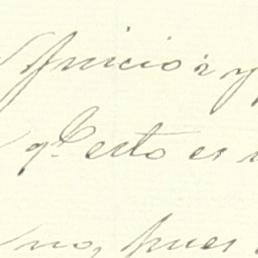 Juicio á y
qe. esto es
no, pues